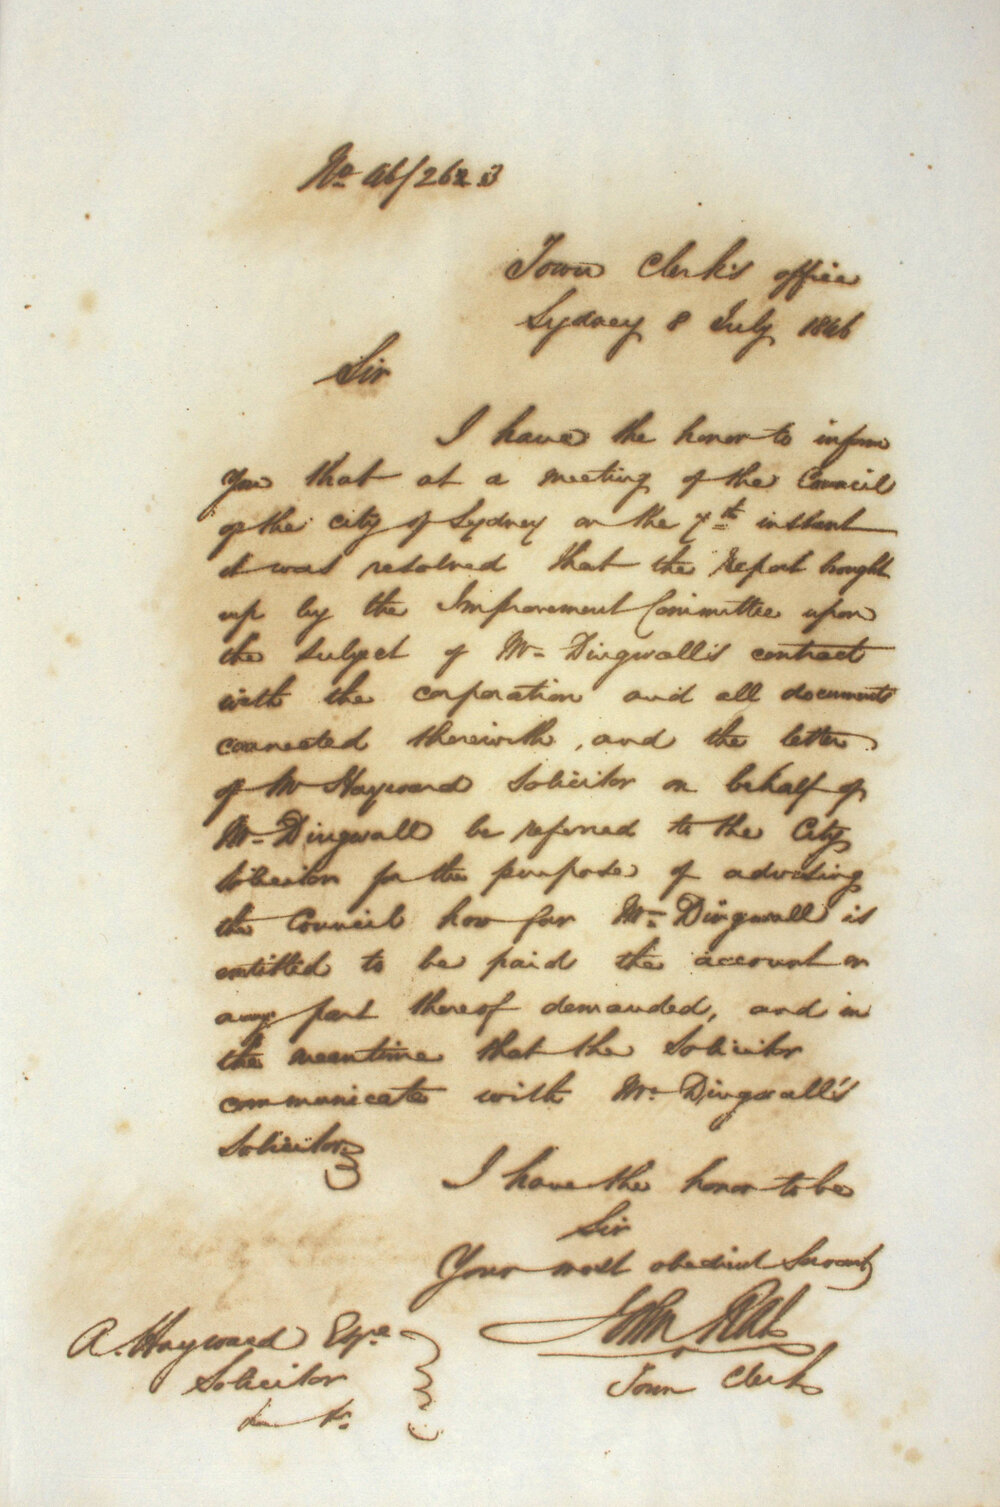 No 46/262
Town Clerk's office
Sydney 8 July 1846
Sir
I have the honor to inform
you that at a meeting of the Council
of the city of Sydney on the 7th instant
it was resolved that the Report brought
up by the Improvement Committee upon
the subject of Mr Dingwall's contract
with the corporation and all documents
connected therewith, and the letter
of Mr Hayward Solicitor on behalf of
Mr Dingwall be referred to the City
Solicitor for the purpose of advising
the Council how far Mr Dingwall is
entitled to be paid the account or
any part thereof demanded, and in
the meantime that the Solicitor
communicate with Mr Dingwall's
Solicitor
I have the honor to be
Sir
Your most obedient Servant
John Rae
Town Clerk
A. Hayward Esqre
Solicitor